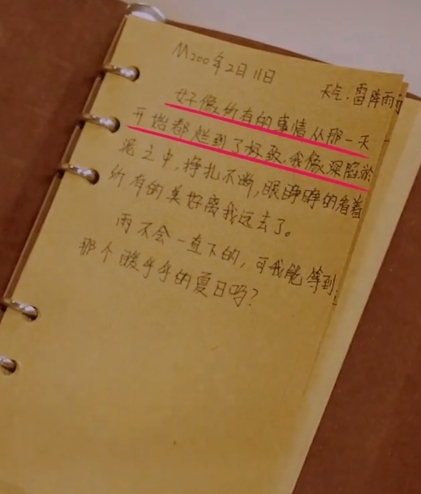 M200年2月11日
天气:雷阵雨
好像所有的事情从那一天
开始都烂到了极致,我像深陷淤
泥之中,挣扎不断,眼睁睁的看着
所有的美好离我远去了。
雨不会一直下的,可我能等到
那个酸乎乎的夏日吗?